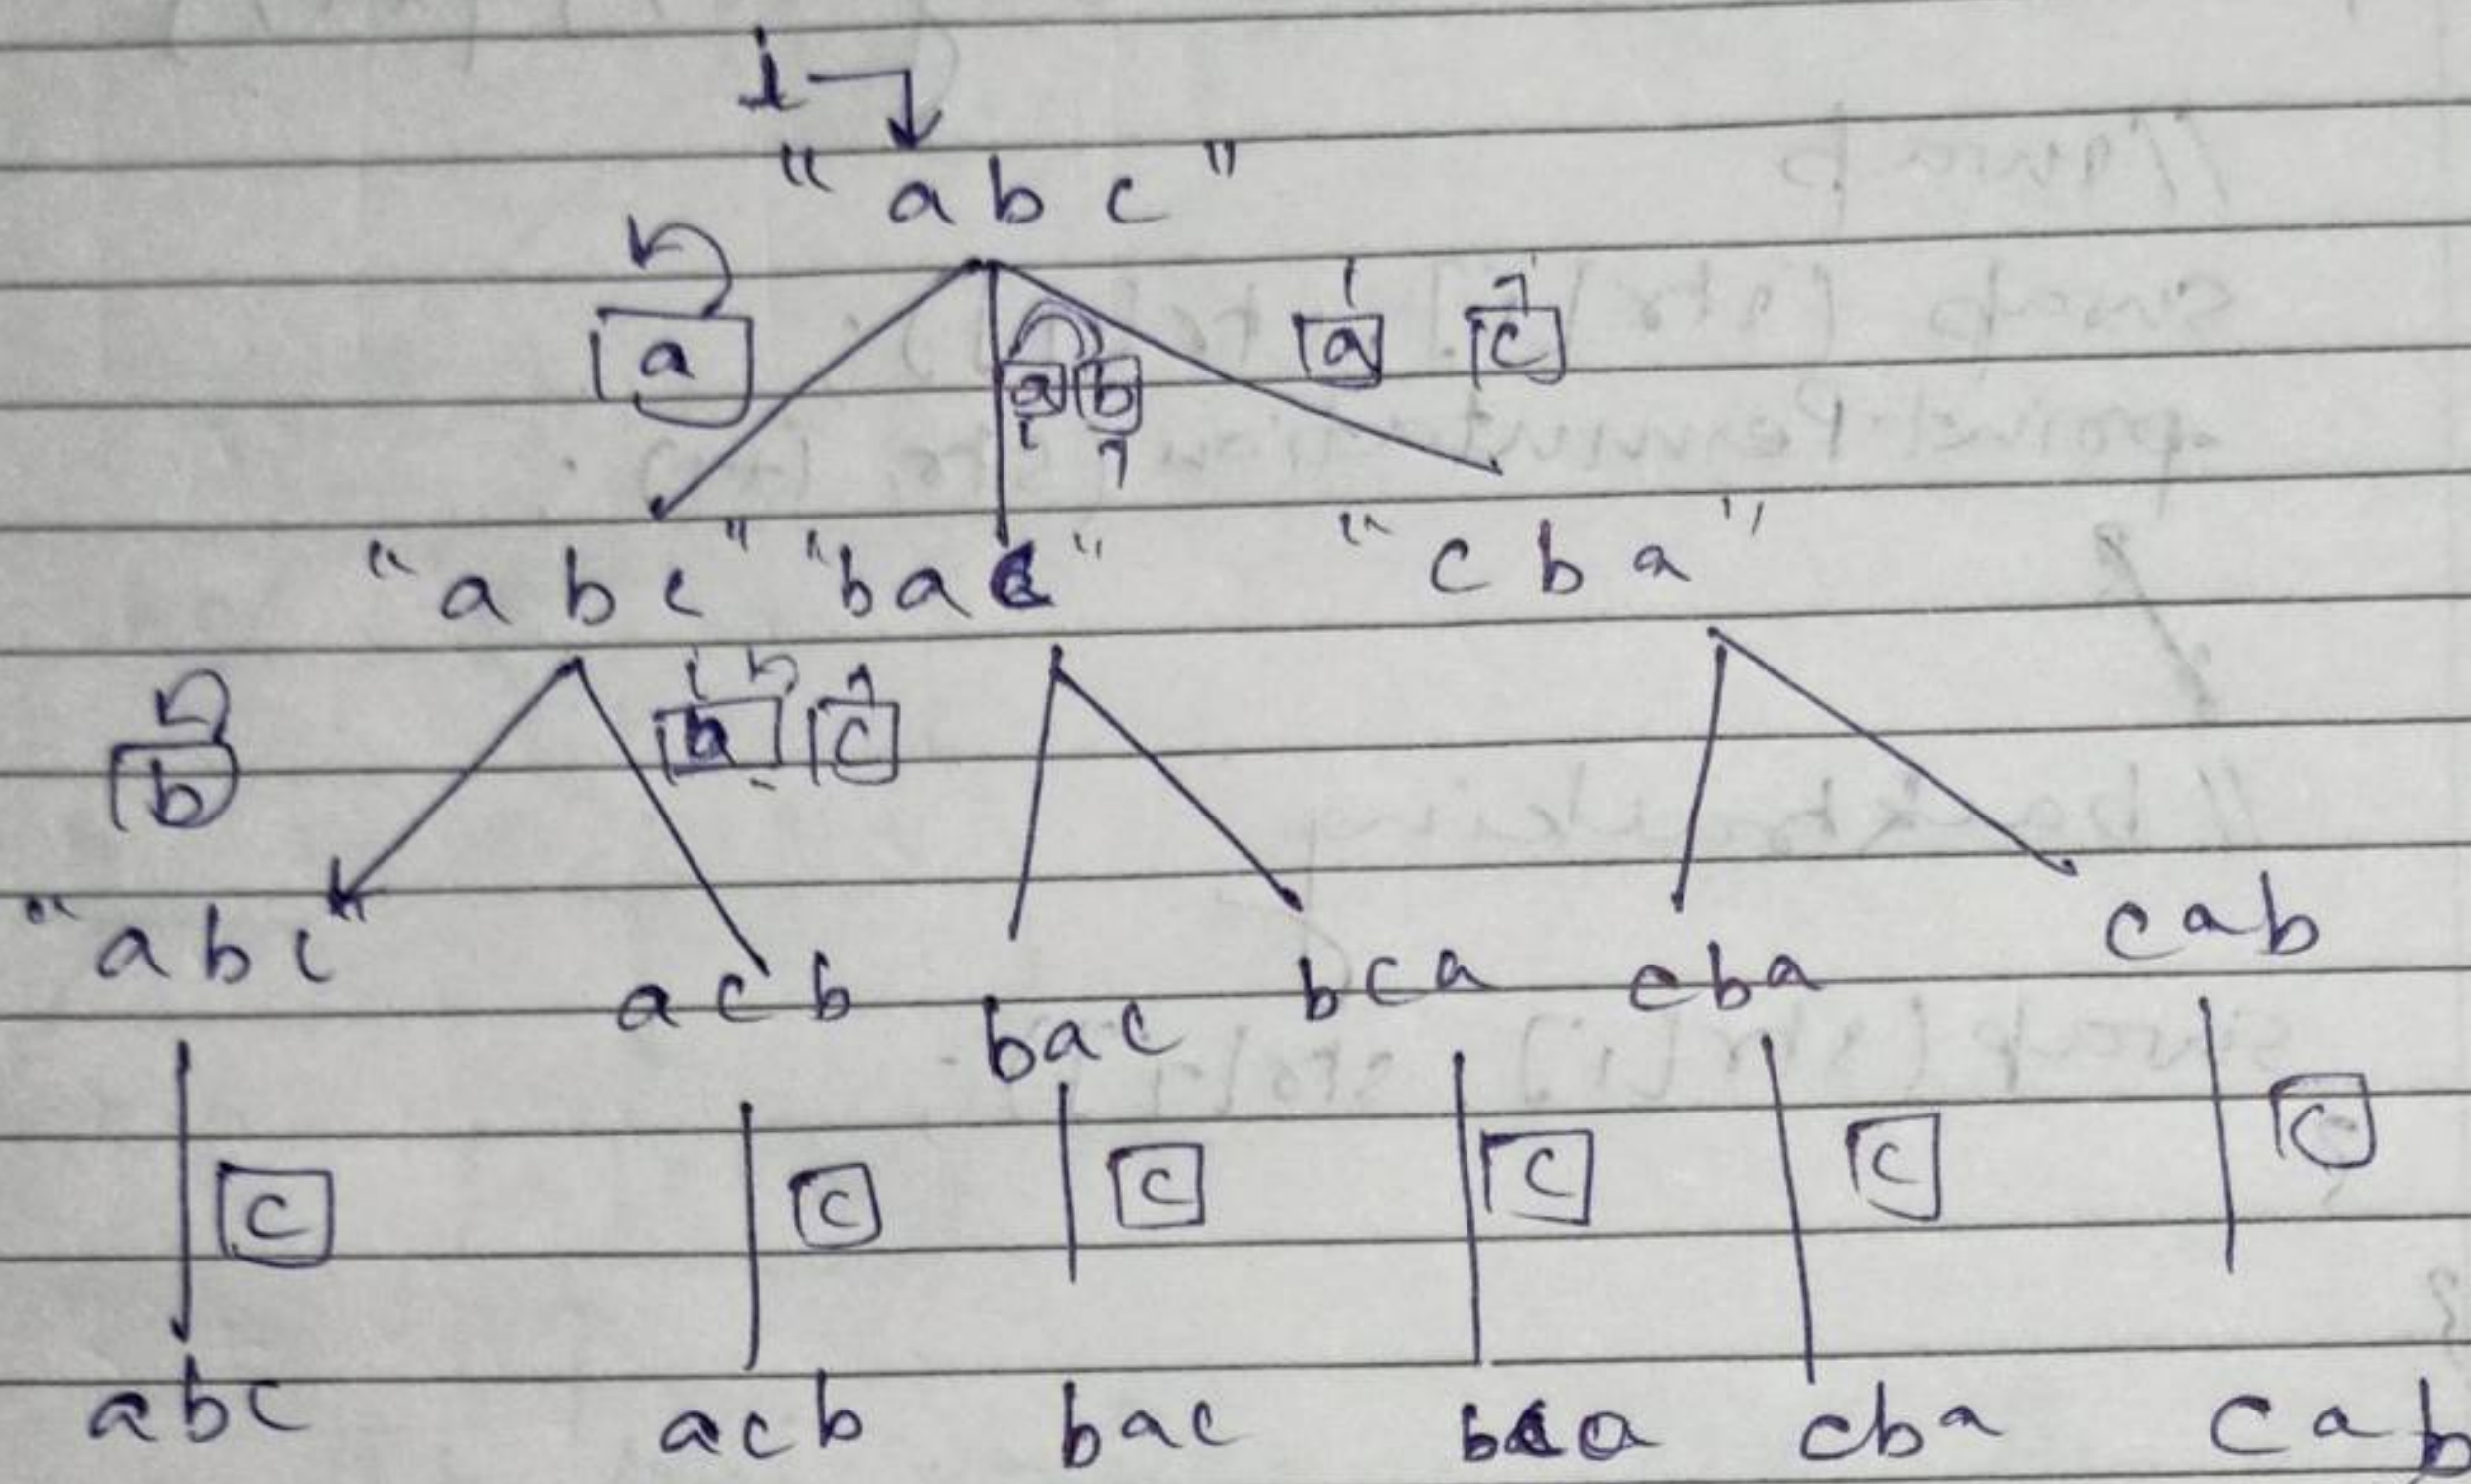 i
"abc"
a a b a c
i j i j
"abc" "bac" "cba"
b b c
i j
"abc" acb bac bca cba cab
c c c c c c
abc acb bac bca cba cab